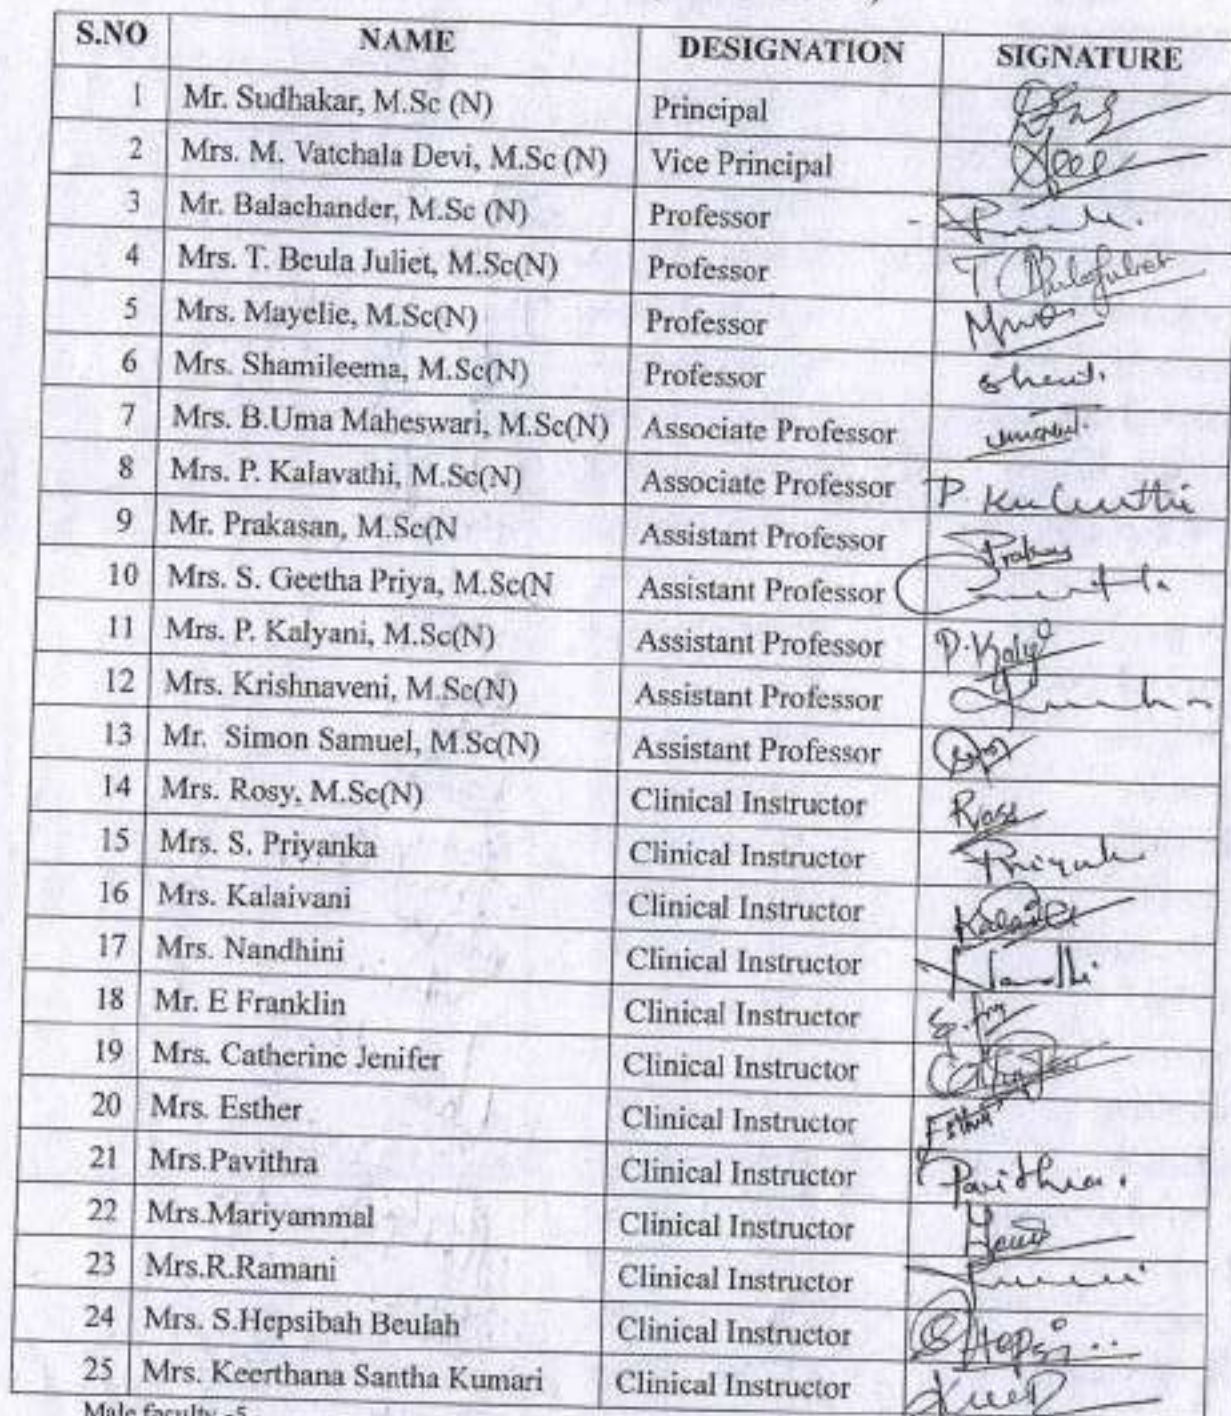 S.NO NAME DESIGNATION SIGNATURE
1 Mr. Sudhakar, M.Sc (N) Principal
2 Mrs. M. Vatchala Devi, M.Sc (N) Vice Principal
3 Mr. Balachander, M.Sc (N) Professor
4 Mrs. T. Beula Juliet, M.Sc(N) Professor
5 Mrs. Mayelie, M.Sc(N) Professor
6 Mrs. Shamileema, M.Sc(N) Professor
7 Mrs. B.Uma Maheswari, M.Sc(N) Associate Professor
8 Mrs. P. Kalavathi, M.Sc(N) Associate Professor P.
9 Mr. Prakasan, M.Sc(N Assistant Professor
10 Mrs. S. Geetha Priya, M.Sc(N Assistant Professor
11 Mrs. P. Kalyani, M.Sc(N) Assistant Professor
12 Mrs. Krishnaveni, M.Sc(N) Assistant Professor
13 Mr. Simon Samuel, M.Sc(N) Assistant Professor
14 Mrs. Rosy, M.Sc(N) Clinical Instructor
15 Mrs. S. Priyanka Clinical Instructor
16 Mrs. Kalaivani Clinical Instructor
17 Mrs. Nandhini Clinical Instructor
18 Mr. E Franklin Clinical Instructor
19 Mrs. Catherine Jenifer Clinical Instructor
20 Mrs. Esther Clinical Instructor
21 Mrs.Pavithra Clinical Instructor Pavithra.
22 Mrs.Mariyammal Clinical Instructor
23 Mrs.R.Ramani Clinical Instructor
24 Mrs. S.Hepsibah Beulah Clinical Instructor
25 Mrs. Keerthana Santha Kumari Clinical Instructor
Male faculty -5